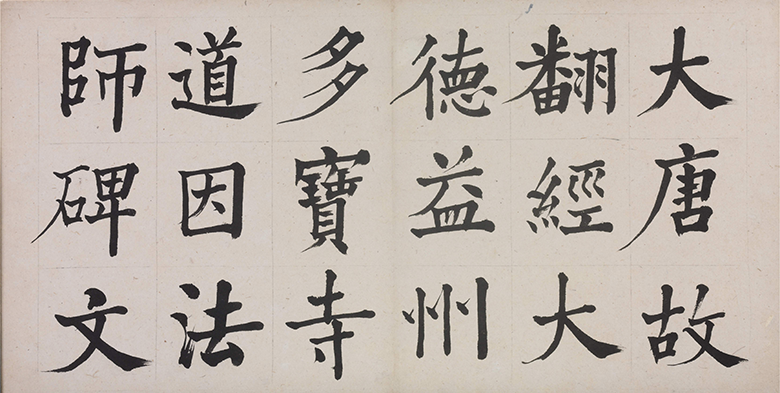 大唐故
翻經大
德益州
多寶寺
道因法
師碑文